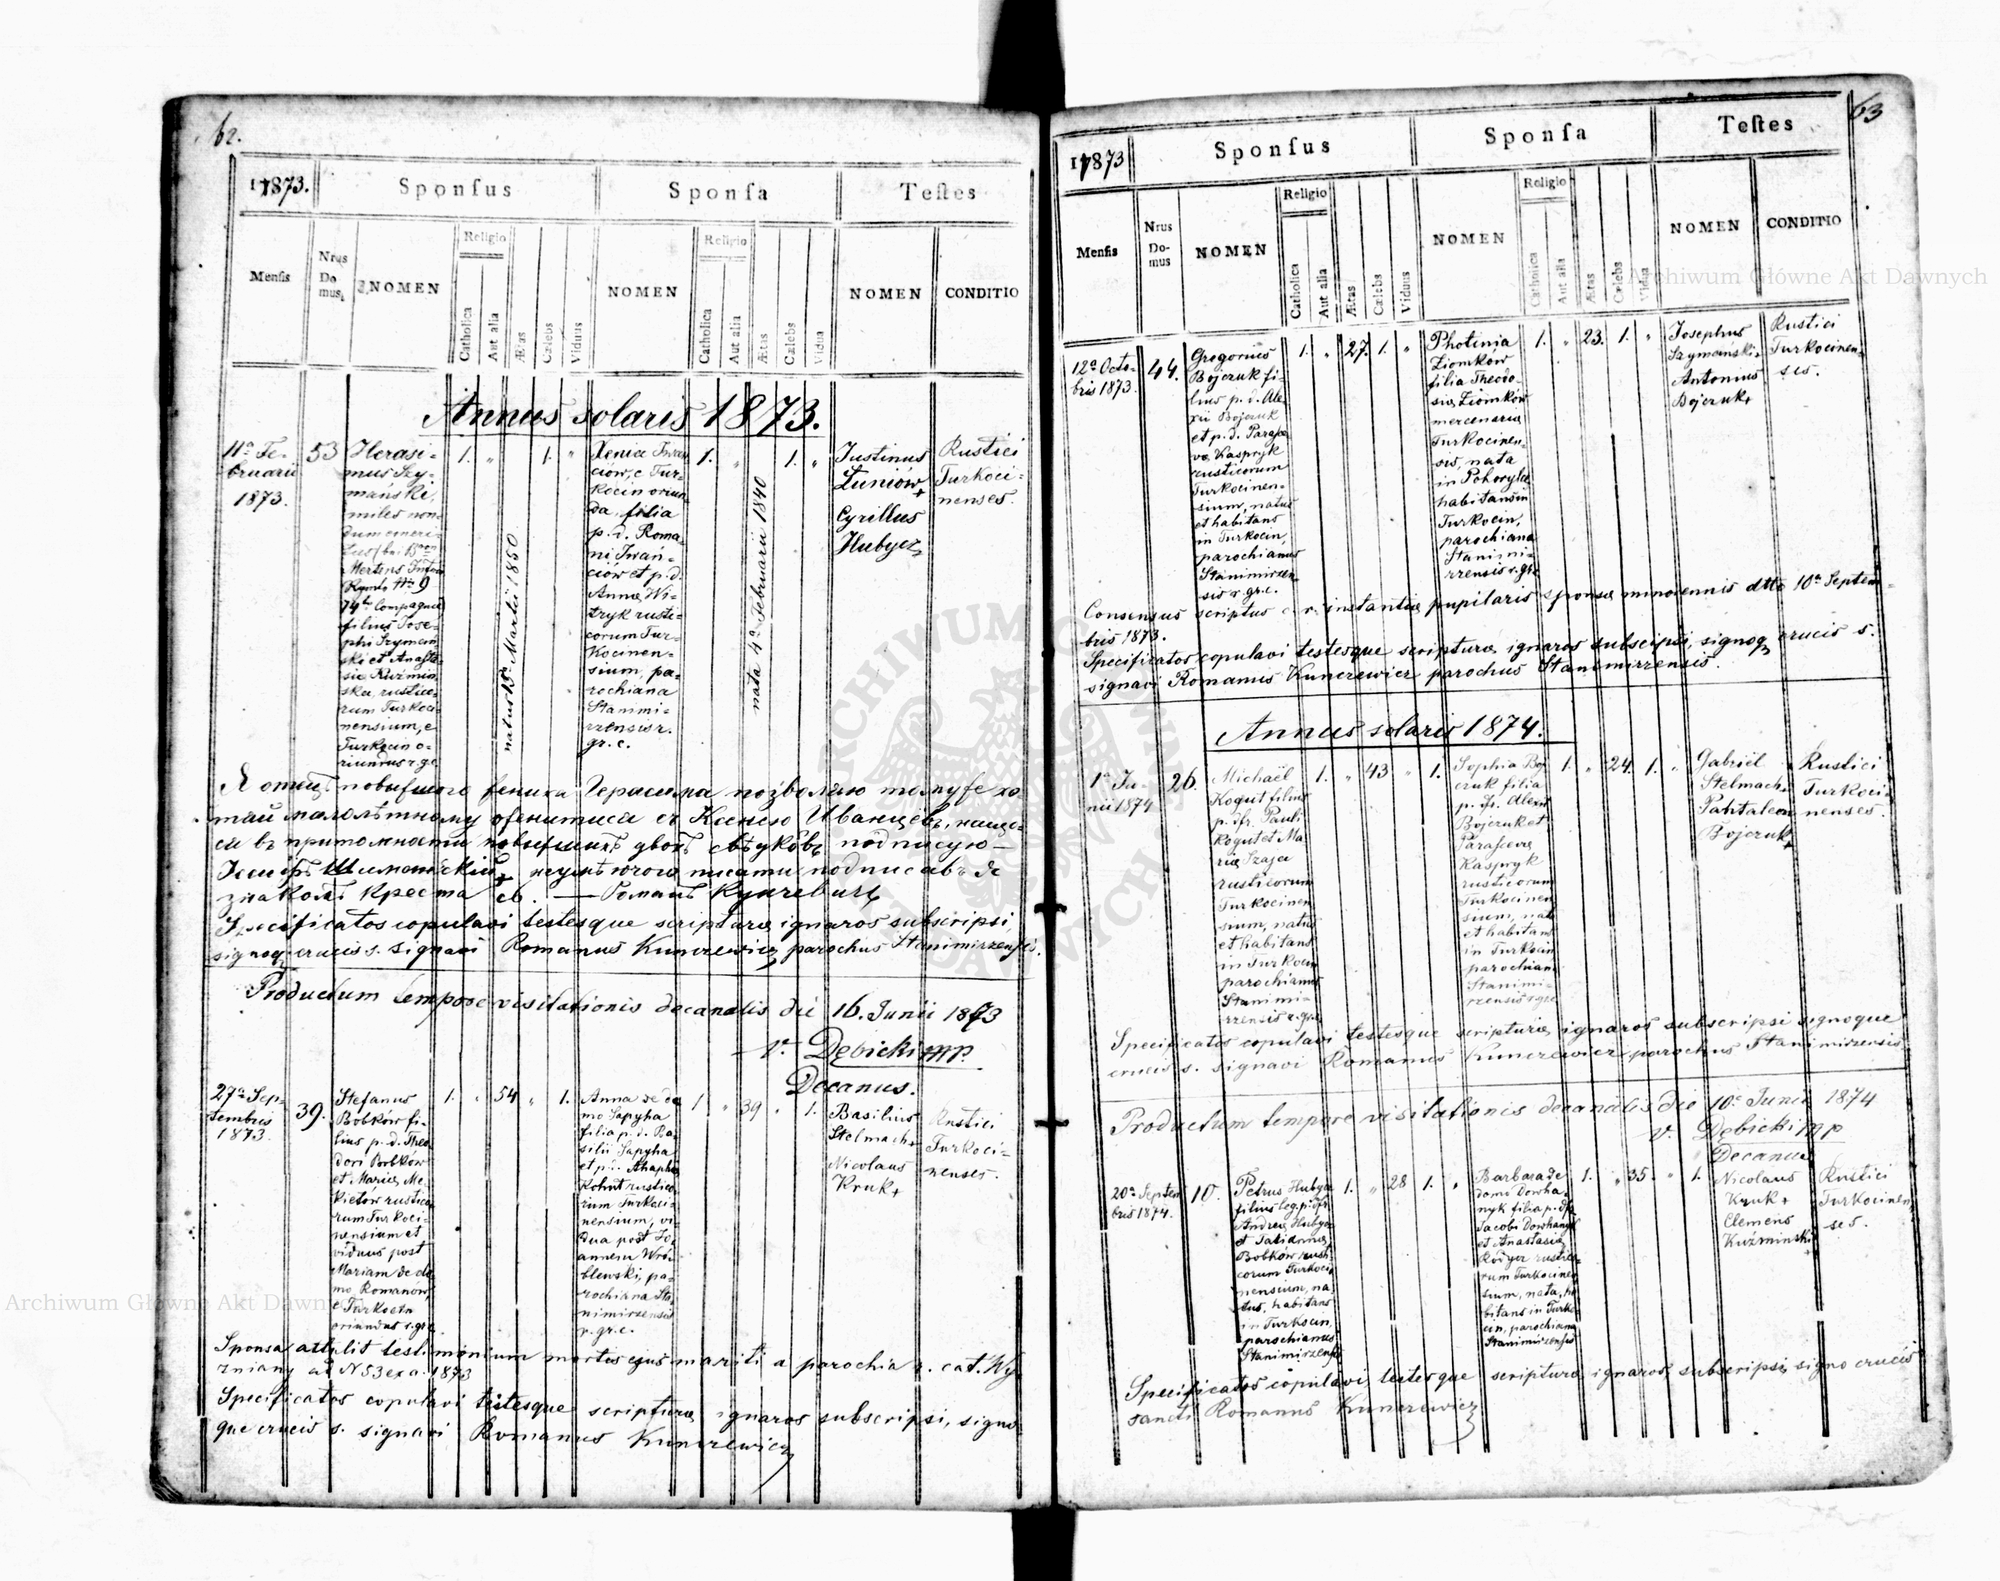 62.
1873.
Sponsus
Sponsa
Testes
Mensis
Nrus Domus
NOMEN
Religio
Catholica
Aut alia
Ætas
Cælebs
Viduus
NOMEN
Religio
Catholica
Aut alia
Ætas
Cælebs
Vidua
NOMEN
CONDITIO
Annus solaris 1873.
11a Fe-
bruarii
1873.
53
Herasi-
mus Szy-
mański,
miles non-
dum emeri-
tus
Compagnie
filius Jose-
phi Szymań-
ski et Anasta-
siæ Kuźmin-
ska, rustico-
rum Turkoci-
nensium, e
Turkocin o-
riundus r.gr.c.
1.
"
natus 15a Martii 1850
1.
"
Xenia Iwań
ciów, e Tur-
kocin oriun
da, filia
p. d. Roma-
ni Iwań-
ciów et p.d.
Annæ Wi-
tryk rusti-
corum Tur-
kocinen-
sium, pa-
rochiana
Stanimi-
rzensis r.
gr. c.
1.
"
nata 4a Februarii 1840
1.
"
Justinus
Łuniów +
Cyrillus
Hubycz +
Rustici
Turkoci-
nenses.
Я отець повысшого жениха Герасима позволяю тому же хо-
тяй малолѣтному оженитися съ Ксенею Иванцѣвъ, наще-
си въ притомности повысшихъ двохъ свѣдкôвъ подписую —
Іосифъ Шиманьскій + неумѣючого писати подписавъ я
знакомъ Креста св. — Романъ Кунцевичъ
Specificatos copulavi testesque scripturæ ignaros subscripsi,
signoq. crucis s. signavi Romanus Kuncewicz parochus Stanimirzensis.
Productum tempore visitationis decanalis die 16. Junii 1873
v. Dębicki mp.
Decanus.
27a Sep-
tembris
1873.
39.
Stefanus
Bobków fi-
lius p. d. Theo
dori Bobków
et Mariæ Me-
kietów rustico
rum Turkoci-
nensium et
viduus post
Mariam de do
mo Romanow
e Turkocin
oriundus r.gr.c.
1.
"
54
"
1.
Anna de do
mo Sapyha
filia p. d. Ba-
silii Sapyha
et p.d. Ahaphiæ
Kohut rustico
rum Turkoci-
nensium, vi-
dua post Jo-
annem Wró-
blewski, pa-
rochiana Sta
nimirzensis
r. gr. c.
1
"
39
"
1.
Basilius
Stelmach +
Nicolaus
Kruk +
Rustici
Turkoci-
nenses.
Sponsa attulit testimonium mortis ejus mariti a parochia r. cat. Wy-
zniany ad N 53 ex a. 1873
Specificatos copulavi testesque scripturæ ignaros subscripsi, signo
que crucis s. signavi Romanus Kuncewicz
63
1873
Sponsus
Sponsa
Testes
Mensis
Nrus Domus
NOMEN
Religio
Catholica
Aut alia
Ætas
Cælebs
Viduus
NOMEN
Religio
Catholica
Aut alia
Ætas
Cælebs
Vidua
NOMEN
CONDITIO
12a Octo-
bris 1873.
44.
Gregorius
Bojczuk fi-
lius p. d. Ale-
xii Bojczuk
et p. d. Parasce
væ Kaspryk
rusticorum
Turkocinen-
sium, natus
et habitans
in Turkocin,
parochianus
Stanimirzen
sis r. gr. c.
1.
"
27.
1.
"
Photinia
Ziomków
filia Theodo-
siæ Ziomków
mercenariæ
Turkocinen-
sis, nata
in Pohorylce
habitans in
Turkocin,
parochiana
Stanimi-
rzensis r.gr.c.
1.
"
23.
1.
"
Josephus
Szymański +
Antonius
Bojczuk +
Rustici
Turkocinen-
ses.
Consensus scriptus c. r. instantiæ pupilaris sponsæ minorennis dtto 10a Septem-
bris 1873.
Specificatos copulavi testesque scripturæ ignaros subscripsi, signoq. crucis s.
signavi Romanus Kuncewicz parochus Stanimirzensis.
Annus solaris 1874.
1a Ju-
nii 1874
26.
Michaël
Kogut filius
p. dfr. Pauli
Kogut et Ma-
riæ Szajca
rusticorum
Turkocinen
sium, natus
et habitans
in Turkocin
parochianus
Stanimi-
rzensis r.gr.c.
1.
"
43
"
1.
Sophia Boj
czuk filia
p. dfr. Alexii
Bojczuk et
Parascevæ
Kaspryk
rusticorum
Turkocinen
sium, nata
et habitans
in Turkocin
parochiana
Stanimi-
rzensis r.gr.c
1.
"
24.
1.
"
Gabriël
Stelmach +
Pantaleon
Bojczuk +
Rustici
Turkoci-
nenses.
Specificatos copulavi testesque scripturæ ignaros subscripsi signoque
crucis s. signavi Romanus Kuncewicz parochus Stanimirzensis
Productum tempore visitationis decanalis die 10e Junii 1874
v. Dębicki mp
Decanus
20a Septem
bris 1874.
10.
Petrus Hubycz
filius leg. p. dfr.
Andreæ Hubycz
et Tatiannæ
Bobków rusti
corum Turkoci
nensium, na
tus, habitans
in Turkocin,
parochianus
Stanimirzensis
1.
"
28
1.
"
Barbara de
domo Dowha-
nyk filia p. dfr.
Jacobi Dowhanyk
et Anastasiæ
rustico-
rum Turkocinen
sium, nata, ha
bitans in Turko
cin, parochiana
Stanimirzensis
1.
"
35.
"
1.
Nicolaus
Kruk +
Clemens
Kuźminski +
Rustici
Turkocinen
ses.
Specificatos copulavi, testesque scripturæ ignaros subscripsi signo crucis
sancti Romanus Kuncewicz
Archiwum Główne Akt Dawnych
Archiwum Główne Akt Dawn
ARCHIWUM
DAWNYCH